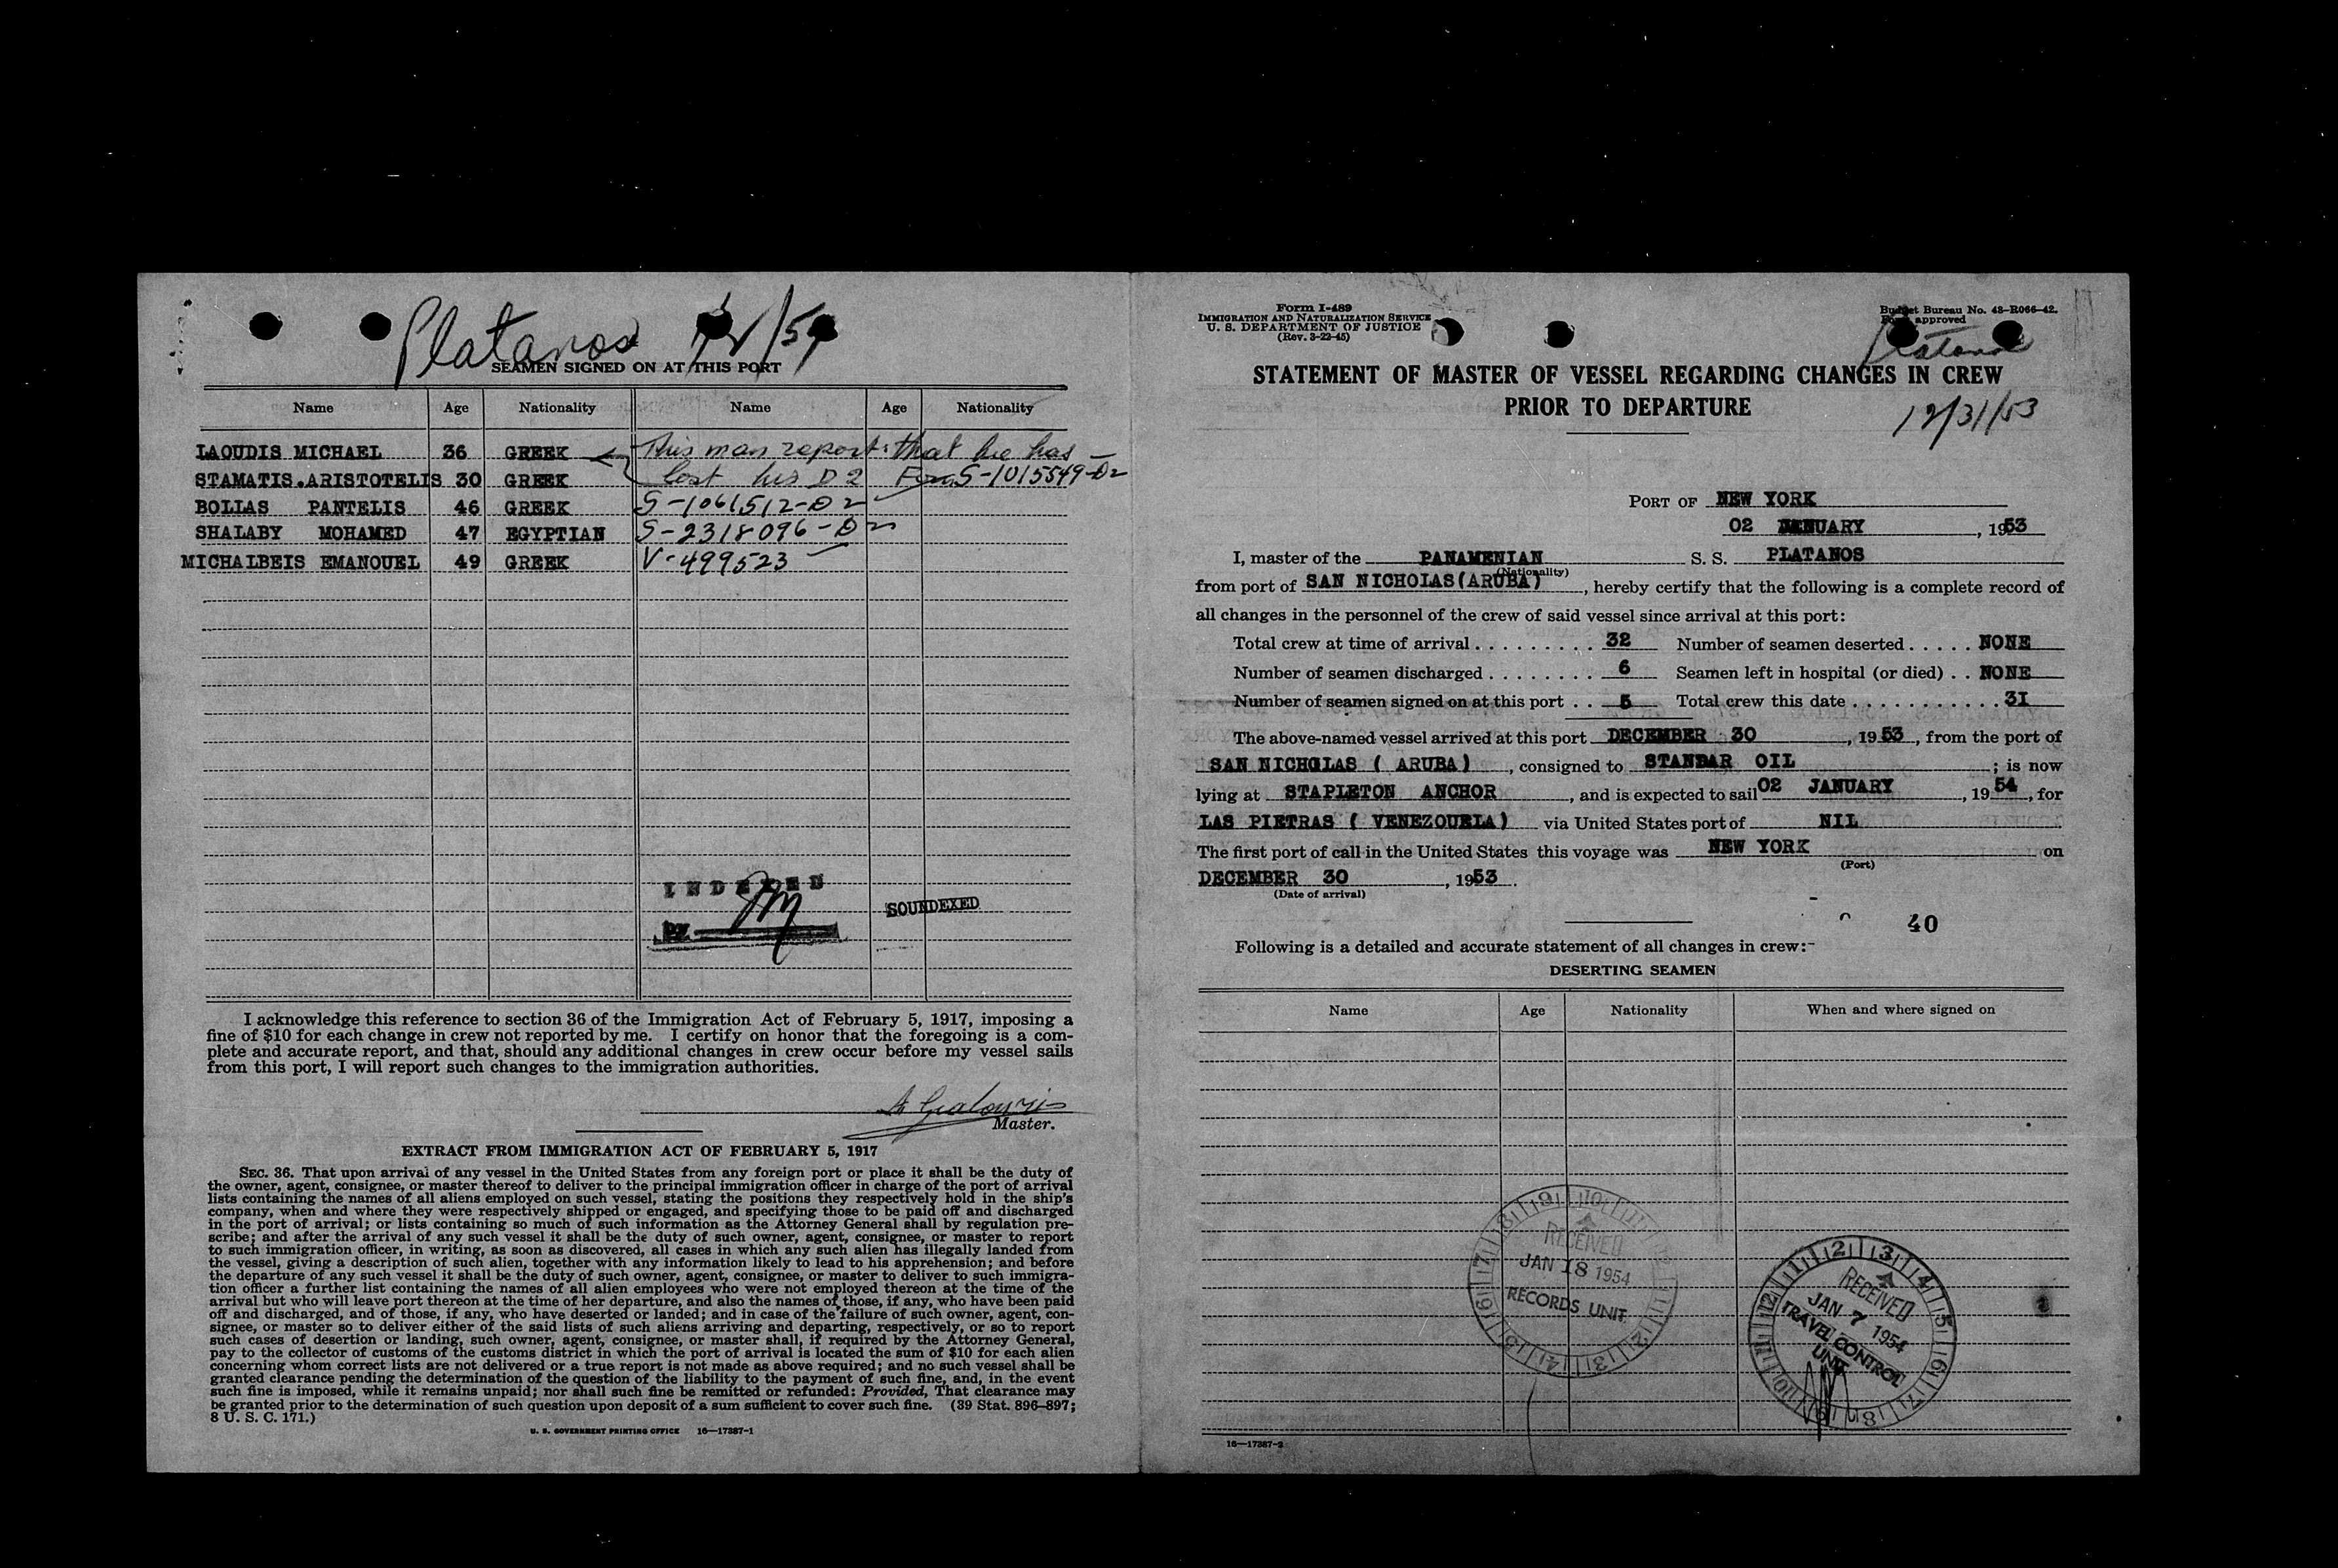 Platanos 1/2/54
SEAMEN SIGNED ON AT THIS PORT
Name Age Nationality Name Age Nationality
LAOUDIS MICHAEL 36 GREEK This man reports that he has
STAMATIS.ARISTOTELIS 30 GREEK lost his D2 Form S-1015549-D2
BOLLAS PANTELIS 46 GREEK S-1061512-D2
SHALABY MOHAMED 47 EGYPTIAN S-2318096-D2
MICHALBEIS EMANOUEL 49 GREEK V-499523
INDEXED
BY
SOUNDEXED
I acknowledge this reference to section 36 of the Immigration Act of February 5, 1917, imposing a
fine of $10 for each change in crew not reported by me. I certify on honor that the foregoing is a com-
plete and accurate report, and that, should any additional changes in crew occur before my vessel sails
from this port, I will report such changes to the immigration authorities.
Master.
EXTRACT FROM IMMIGRATION ACT OF FEBRUARY 5, 1917
SEC. 36. That upon arrival of any vessel in the United States from any foreign port or place it shall be the duty of
the owner, agent, consignee, or master thereof to deliver to the principal immigration officer in charge of the port of arrival
lists containing the names of all aliens employed on such vessel, stating the positions they respectively hold in the ship's
company, when and where they were respectively shipped or engaged, and specifying those to be paid off and discharged
in the port of arrival; or lists containing so much of such information as the Attorney General shall by regulation pre-
scribe; and after the arrival of any such vessel it shall be the duty of such owner, agent, consignee, or master to report
to such immigration officer, in writing, as soon as discovered, all cases in which any such alien has illegally landed from
the vessel, giving a description of such alien, together with any information likely to lead to his apprehension; and before
the departure of any such vessel it shall be the duty of such owner, agent, consignee, or master to deliver to such immigra-
tion officer a further list containing the names of all alien employees who were not employed thereon at the time of the
arrival but who will leave port thereon at the time of her departure, and also the names of those, if any, who have been paid
off and discharged, and of those, if any, who have deserted or landed; and in case of the failure of such owner, agent, con-
signee, or master so to deliver either of the said lists of such aliens arriving and departing, respectively, or so to report
such cases of desertion or landing, such owner, agent, consignee, or master shall, if required by the Attorney General,
pay to the collector of customs of the customs district in which the port of arrival is located the sum of $10 for each alien
concerning whom correct lists are not delivered or a true report is not made as above required; and no such vessel shall be
granted clearance pending the determination of the question of the liability to the payment of such fine, and, in the event
such fine is imposed, while it remains unpaid; nor shall such fine be remitted or refunded: Provided, That clearance may
be granted prior to the determination of such question upon deposit of a sum sufficient to cover such fine. (39 Stat. 896-897;
8 U. S. C. 171.)
U. S. GOVERNMENT PRINTING OFFICE 16—17387-1
Form I-489
IMMIGRATION AND NATURALIZATION SERVICE
U. S. DEPARTMENT OF JUSTICE
(Rev. 3-22-45)
Budget Bureau No. 43-R066-42.
Form approved
Platanos
STATEMENT OF MASTER OF VESSEL REGARDING CHANGES IN CREW
PRIOR TO DEPARTURE
12/31/53
PORT OF NEW YORK
02 JANUARY, 1953
I, master of the PANAMENIAN S. S. PLATANOS
(Nationality)
from port of SAN NICHOLAS(ARUBA), hereby certify that the following is a complete record of
all changes in the personnel of the crew of said vessel since arrival at this port:
Total crew at time of arrival......... 32 Number of seamen deserted..... NONE
Number of seamen discharged........ 6 Seamen left in hospital (or died).. NONE
Number of seamen signed on at this port.. 5 Total crew this date........... 31
The above-named vessel arrived at this port DECEMBER 30, 1953, from the port of
SAN NICHOLAS ( ARUBA ), consigned to STANDAR OIL; is now
lying at STAPLETON ANCHOR, and is expected to sail 02 JANUARY, 1954, for
LAS PIETRAS ( VENEZOUELA) via United States port of NIL
The first port of call in the United States this voyage was NEW YORK on
(Port)
DECEMBER 30, 1953.
(Date of arrival)
40
Following is a detailed and accurate statement of all changes in crew:
DESERTING SEAMEN
Name Age Nationality When and where signed on
RECEIVED
JAN 18 1954
RECORDS UNIT
RECEIVED
JAN 7 1954
TRAVEL CONTROL
UNIT
16—17387-2